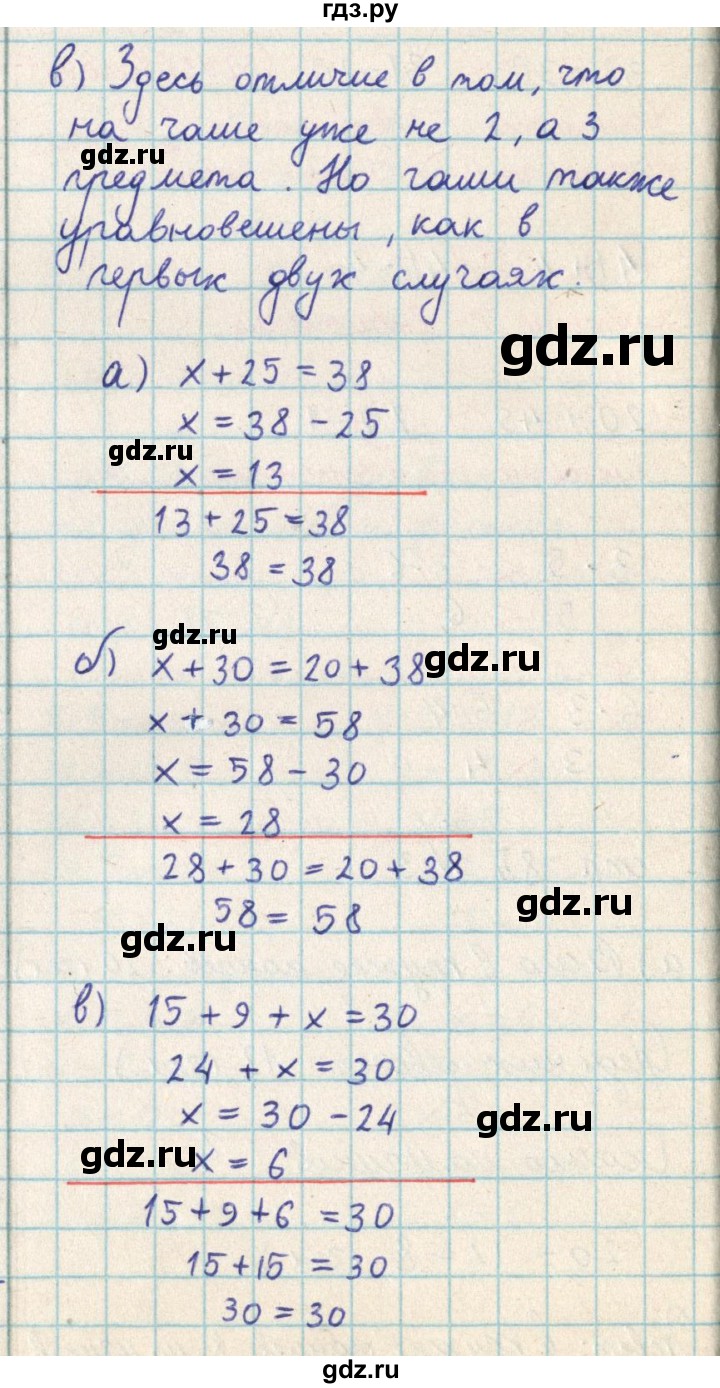 гдз.ру
в) Здесь отличие в том, что
на чаше уже не 2, а 3
gdz.ru
предмета. Но чаши также
уравновешены, как в
первых двух случаях.
gdz.ru
а) x + 25 = 38
x = 38 - 25
gdz.ru
x = 13
13 + 25 = 38
38 = 38
gdz.ru
б) x + 30 = 20 + 38
gdz.ru
x + 30 = 58
x = 58 - 30
x = 28
28 + 30 = 20 + 38
gdz.ru
58 = 58
gdz.ru
в) 15 + 9 + x = 30
24 + x = 30
x = 30 - 24
gdz.ru
gdz.ru
x = 6
15 + 9 + 6 = 30
15 + 15 = 30
30 = 30
gdz.ru